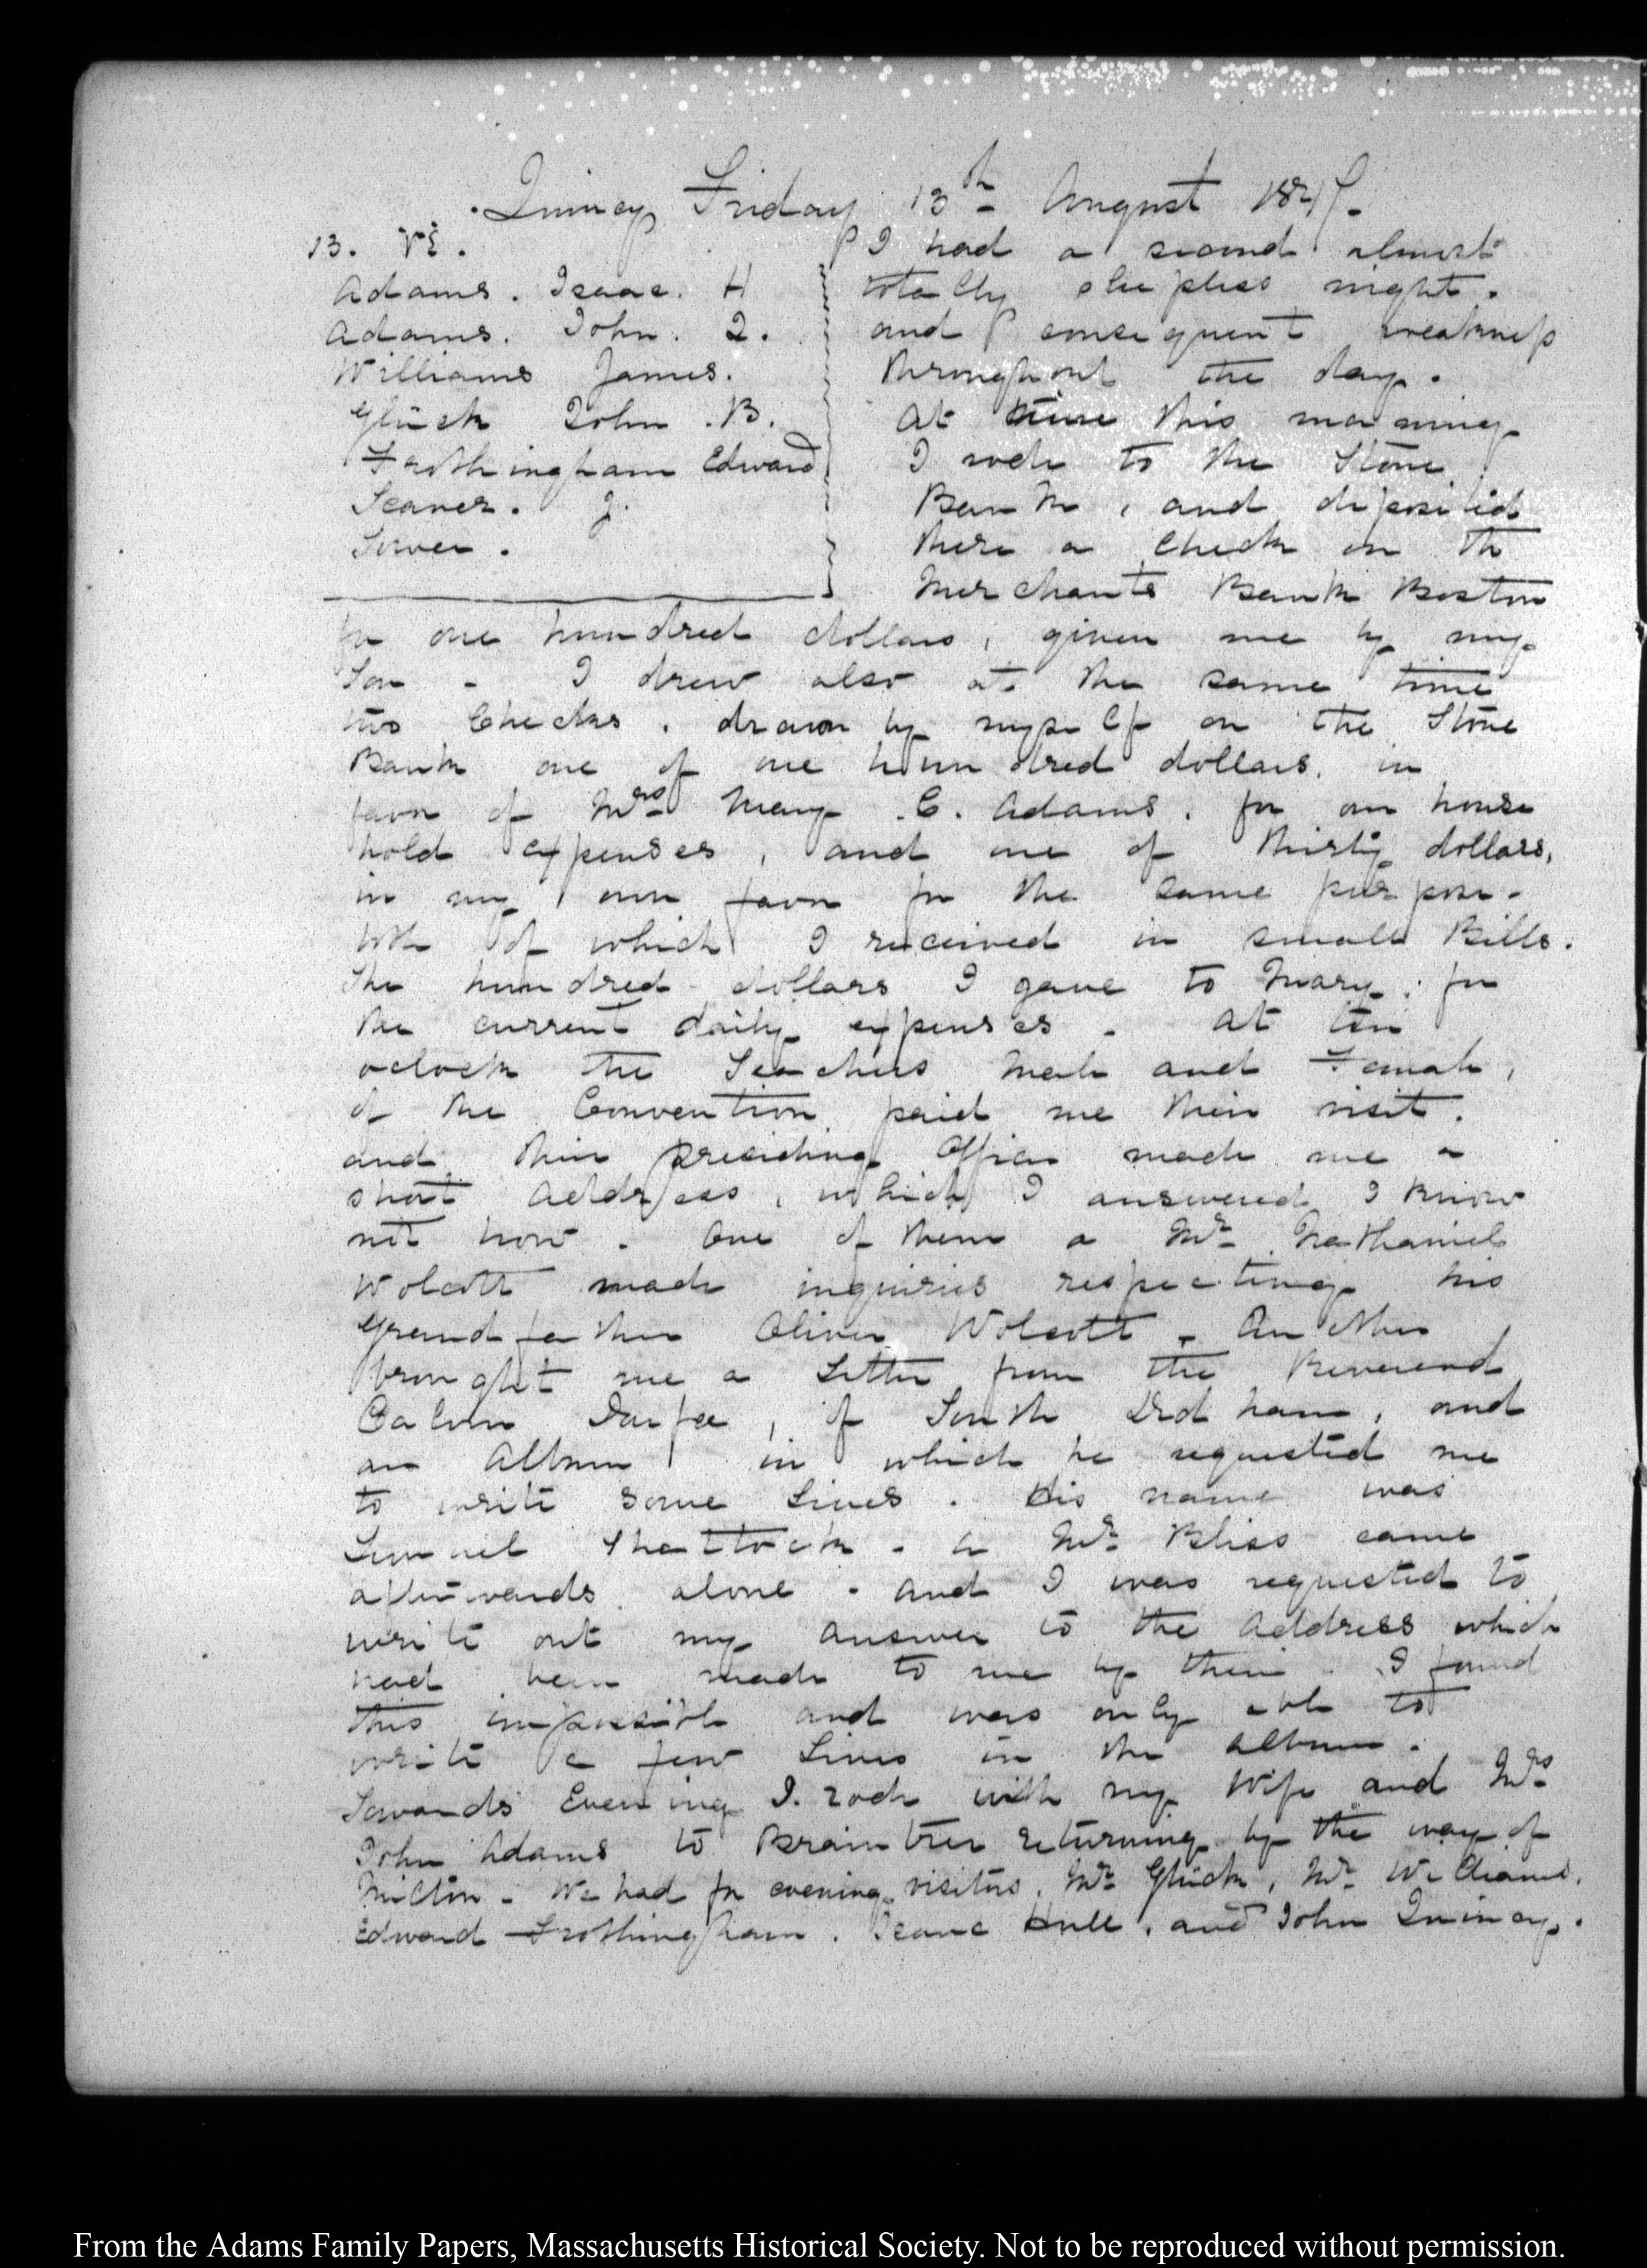 Quincy Friday 13th August 1847.
13. VI.
Adams. Isaac. H
Adams. John. Q.
Williams James.
Glück John. B.
Frothingham Edward
Seaver. J.
Tower.
I had a second almost
totally sleepless night.
and consequent weakness
throughout the day.
At nine this morning
I rode to the Stone
Bank, and deposited
there a Check on the
Merchants Bank Boston
for one hundred dollars, given me by my
Son - I drew also at the same time
two Checks, drawn by myself on the Stone
Bank one of one hundred dollars, in
favor of Mrs Mary C. Adams, for our house
hold expenses, and one of thirty dollars,
in my own favor for the same purpose.
both of which I received in small Bills.
The hundred dollars I gave to Mary, for
the current daily expenses - At ten
oclock the Teachers Male and Female,
of the Convention paid me their visit.
and their presiding Officer made me a
short Address, which I answered I know
not how. One of them a Mr Nathaniel
Wolcott made inquiries respecting his
Grandfather Oliver Wolcott. Another
brought me a Letter from the Reverend
Calvin Durfee, of South Dedham, and
an Album in which he requested me
to write some Lines. His name was
Lemuel Shattock. A Mr Bliss came
afterwards alone. and I was requested to
write out my answer to the Address which
had been made to me by them. I found
this impossible and was only able to
write a few Lines in the album.
Towards Evening I rode with my Wife and Mrs
John Adams to Braintree returning by the way of
Milton - We had for evening visitors, Mr Glück, Mr Williams,
Edward Frothingham, Isaac Hull, and John Quincy.
From the Adams Family Papers, Massachusetts Historical Society. Not to be reproduced without permission.